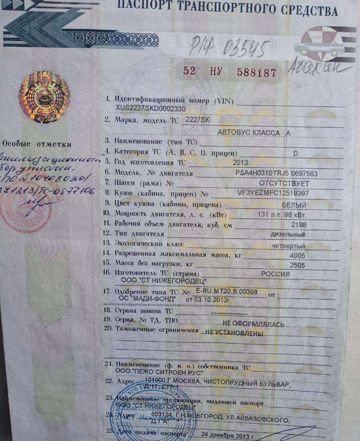 ПАСПОРТ ТРАНСПОРТНОГО СРЕДСТВА
52 НУ 588187
1. Идентификационный номер (VIN) XUS2227SKD0002330
2. Марка, модель ТС 2227SK
АВТОБУС КЛАССА А
3. Наименование (тип ТС)
4. Категория ТС (А, В, С, D, прицеп) D
5. Год изготовления ТС 2013
6. Модель, № двигателя PSA4H0310TRJ5 0697563
7. Шасси (рама) № ОТСУТСТВУЕТ
8. Кузов (кабина, прицеп) № VF3YEZMFC12519397
9. Цвет кузова (кабины, прицепа) БЕЛЫЙ
10. Мощность двигателя, л. с. (кВт) 131 л.с. 96 кВт.
11. Рабочий объем двигателя, куб. см 2198
12. Тип двигателя дизельный
13. Экологический класс четвертый
14. Разрешенная максимальная масса, кг 4005
15. Масса без нагрузки, кг 2505
16. Изготовитель ТС (страна) РОССИЯ
ООО "СТ НИЖЕГОРОДЕЦ"
17. Одобрение типа ТС № E-RU.MT20.B.00398 от
ОС "МАДИ-ФОНД" от 03.10.2013г.
18. Страна вывоза ТС
19. Серия, № ТД, ТПО НЕ ОФОРМЛЯЛАСЬ
20. Таможенные ограничения НЕ УСТАНОВЛЕНЫ
21. Наименование (ф. и. о.) собственника ТС
ООО "ПЕЖО СИТРОЕН РУС"
22. Адрес 101000 Г. МОСКВА, ЧИСТОПРУДНЫЙ БУЛЬВАР,
23. Наименование организации, выдавшей паспорт
ООО "СТ НИЖЕГОРОДЕЦ"
24. Адрес 603124, Г.Н.НОВГОРОД, УЛ.АЙВАЗОВСКОГО,
25. Дата выдачи паспорта 24 декабря 2013 г
Особые отметки